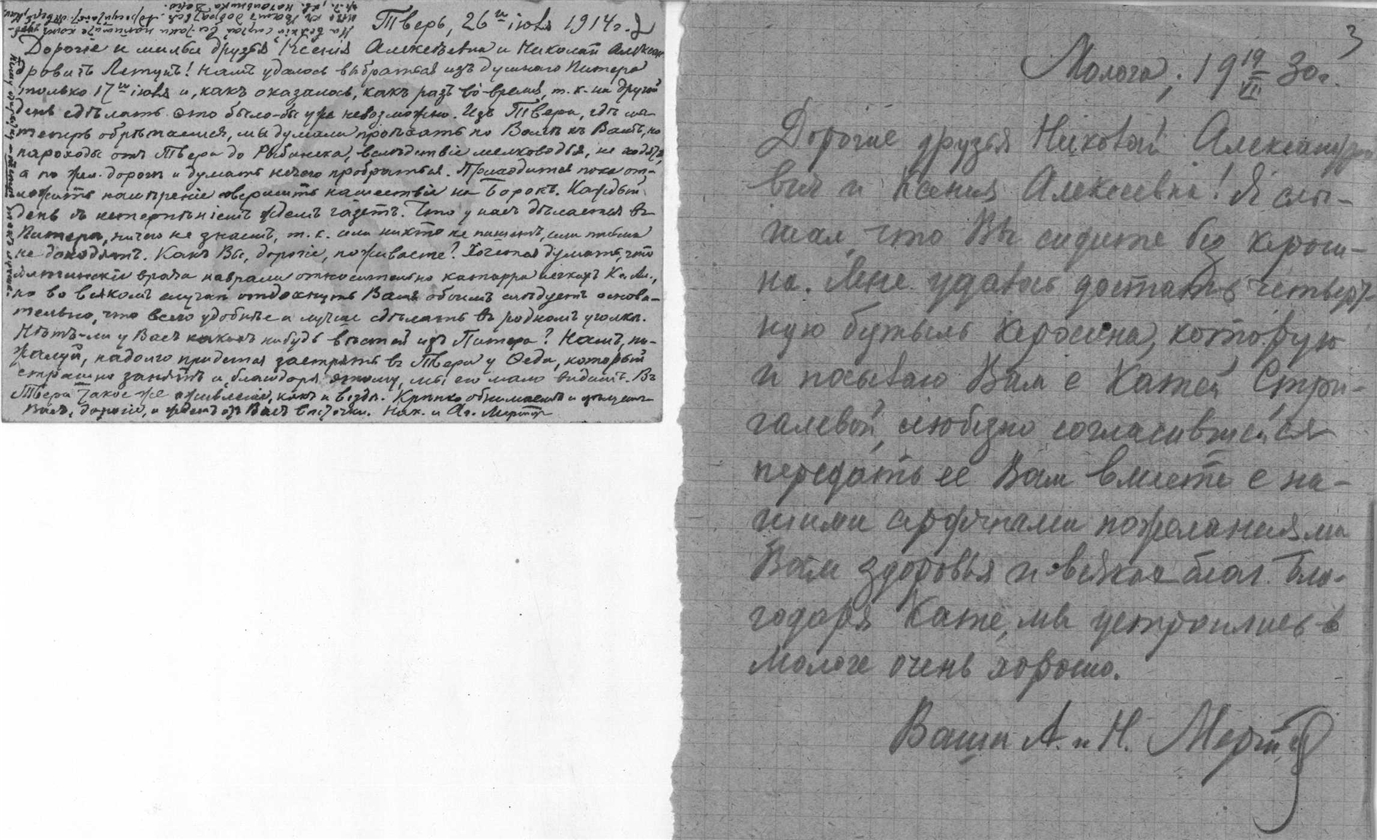 Тверь, 26го июля 1914 г. 2
Дорогіе и милые друзья Ксенія Алексѣевна и Николай Алексан-
дровичъ! Намъ удалось выбраться изъ душнаго Питера
только 17го іюля и, какъ оказалось, какъ разъ во-время, т. к. на другой
день сдѣлать это было-бы уже невозможно. Изъ Твери, гдѣ мы
теперь обрѣтаемся, мы думали проѣхать по Волгѣ къ Вамъ, но
пароходы отъ Твери до Рыбинска, вслѣдствіе мелководья, не ходятъ,
а по жел. дорогѣ и думать нечего пробраться. Приходится пока от-
ложить намѣреніе совершить нашествіе на Борокъ. Каждый
день съ нетерпѣніемъ ждемъ газетъ. Что у насъ дѣлается въ
Питерѣ, ничего не знаемъ, т. к. или никто не пишетъ, или письма
не доходятъ. Какъ Вы, дорогіе, поживаете? Хочется думать, что
врача наврали относительно катарра легкихъ
но во всякомъ случаѣ отдохнуть Вамъ обоимъ слѣдуетъ основа-
тельно, что всего удобнѣе и лучше сдѣлать въ родномъ уголкѣ.
Нѣтъ-ли у Васъ какихъ нибудь вѣстей изъ Питера? Намъ, по-
жалуй, надолго придется застрять въ Твери у Оеда, который
страшно занятъ и, благодаря этому, мы его мало видимъ. Въ
Твери такое же оживленіе, какъ и вездѣ. Крѣпко обнимаемъ и цѣлуемъ
Васъ, дорогіе, и ждемъ отъ Васъ вѣсточки. Ник. и Ал.
3
Молога, 19 19/VII 30 г.
Дорогие друзья Николай Александро-
вич и Ксения Алексеевна! Я слы-
шал, что Вы сидите без кероси-
на. Мне удалось достать четверт-
ную бутыль керосина, которую
и посылаю Вам с Катей Стри-
галевой, любезно согласившейся
передать ее Вам вместе с на-
шими сердечными пожеланиями
Вам здоровья и всяких благ. Бла-
годаря Кате, мы устроились в
Мологе очень хорошо.
Ваши А. и Н.